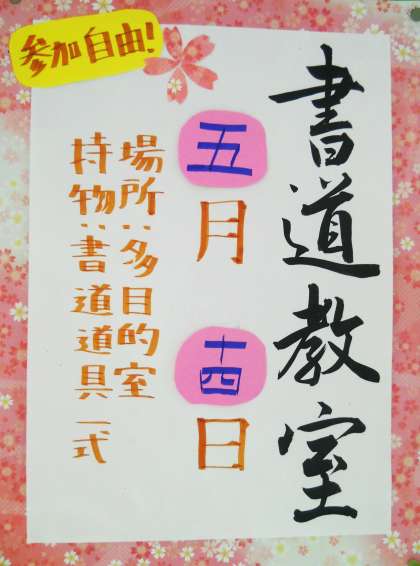 参加自由!
書道教室
五月十四日
場所:多目的室
持物:書道道具一式